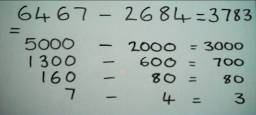 6467 - 2684 = 3783
=
5000 - 2000 = 3000
1300 - 600 = 700
160 - 80 = 80
7 - 4 = 3